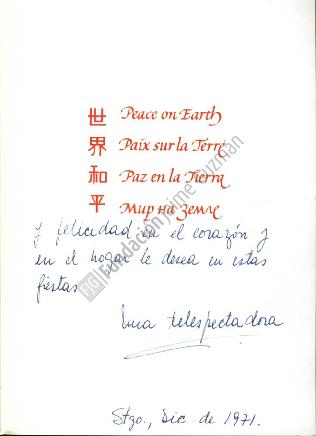 世界和平
Peace on Earth
Paix sur la Terre
Paz en la Tierra
Мир на Земле
y felicidad en el corazón y
en el hogar le desea en estas
fiestas
Una telespectadora
Stgo., Dic. de 1971.
Fundación Jaime Guzmán